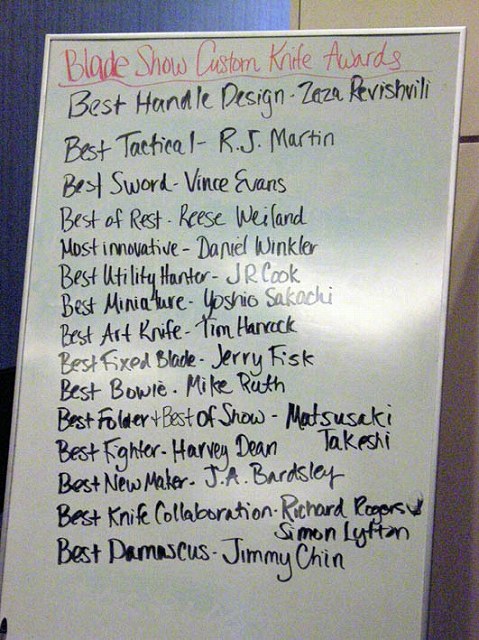 Blade Show Custom Knife Awards
Best Handle Design - Zaza Revishvili
Best Tactical - R.J. Martin
Best Sword - Vince Evans
Best of Rest - Reese Weiland
Most innovative - Daniel Winkler
Best Utility Hunter - J R Cook
Best Miniature - Yoshio Sakachi
Best Art Knife - Tim Hancock
Best Fixed Blade - Jerry Fisk
Best Bowie - Mike Ruth
Best Folder + Best Of Show - Matsusaki
Takeshi
Best Fighter - Harvey Dean
Best New Maker - J.A. Bardsley
Best Knife Collaboration - Richard Rogers
Simon Lytton
Best Damascus - Jimmy Chin